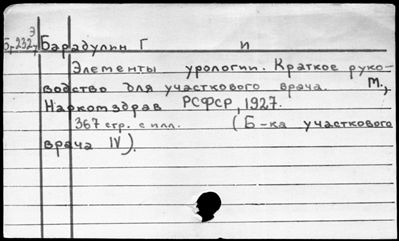 Э
Б-232, Барадулин Г И
Элементы урологии. Краткое руко-
водство для участкового врача. М.,
Наркомздрав РСФСР, 1927.
367 стр. с илл. (Б-ка участкового
врача IV).